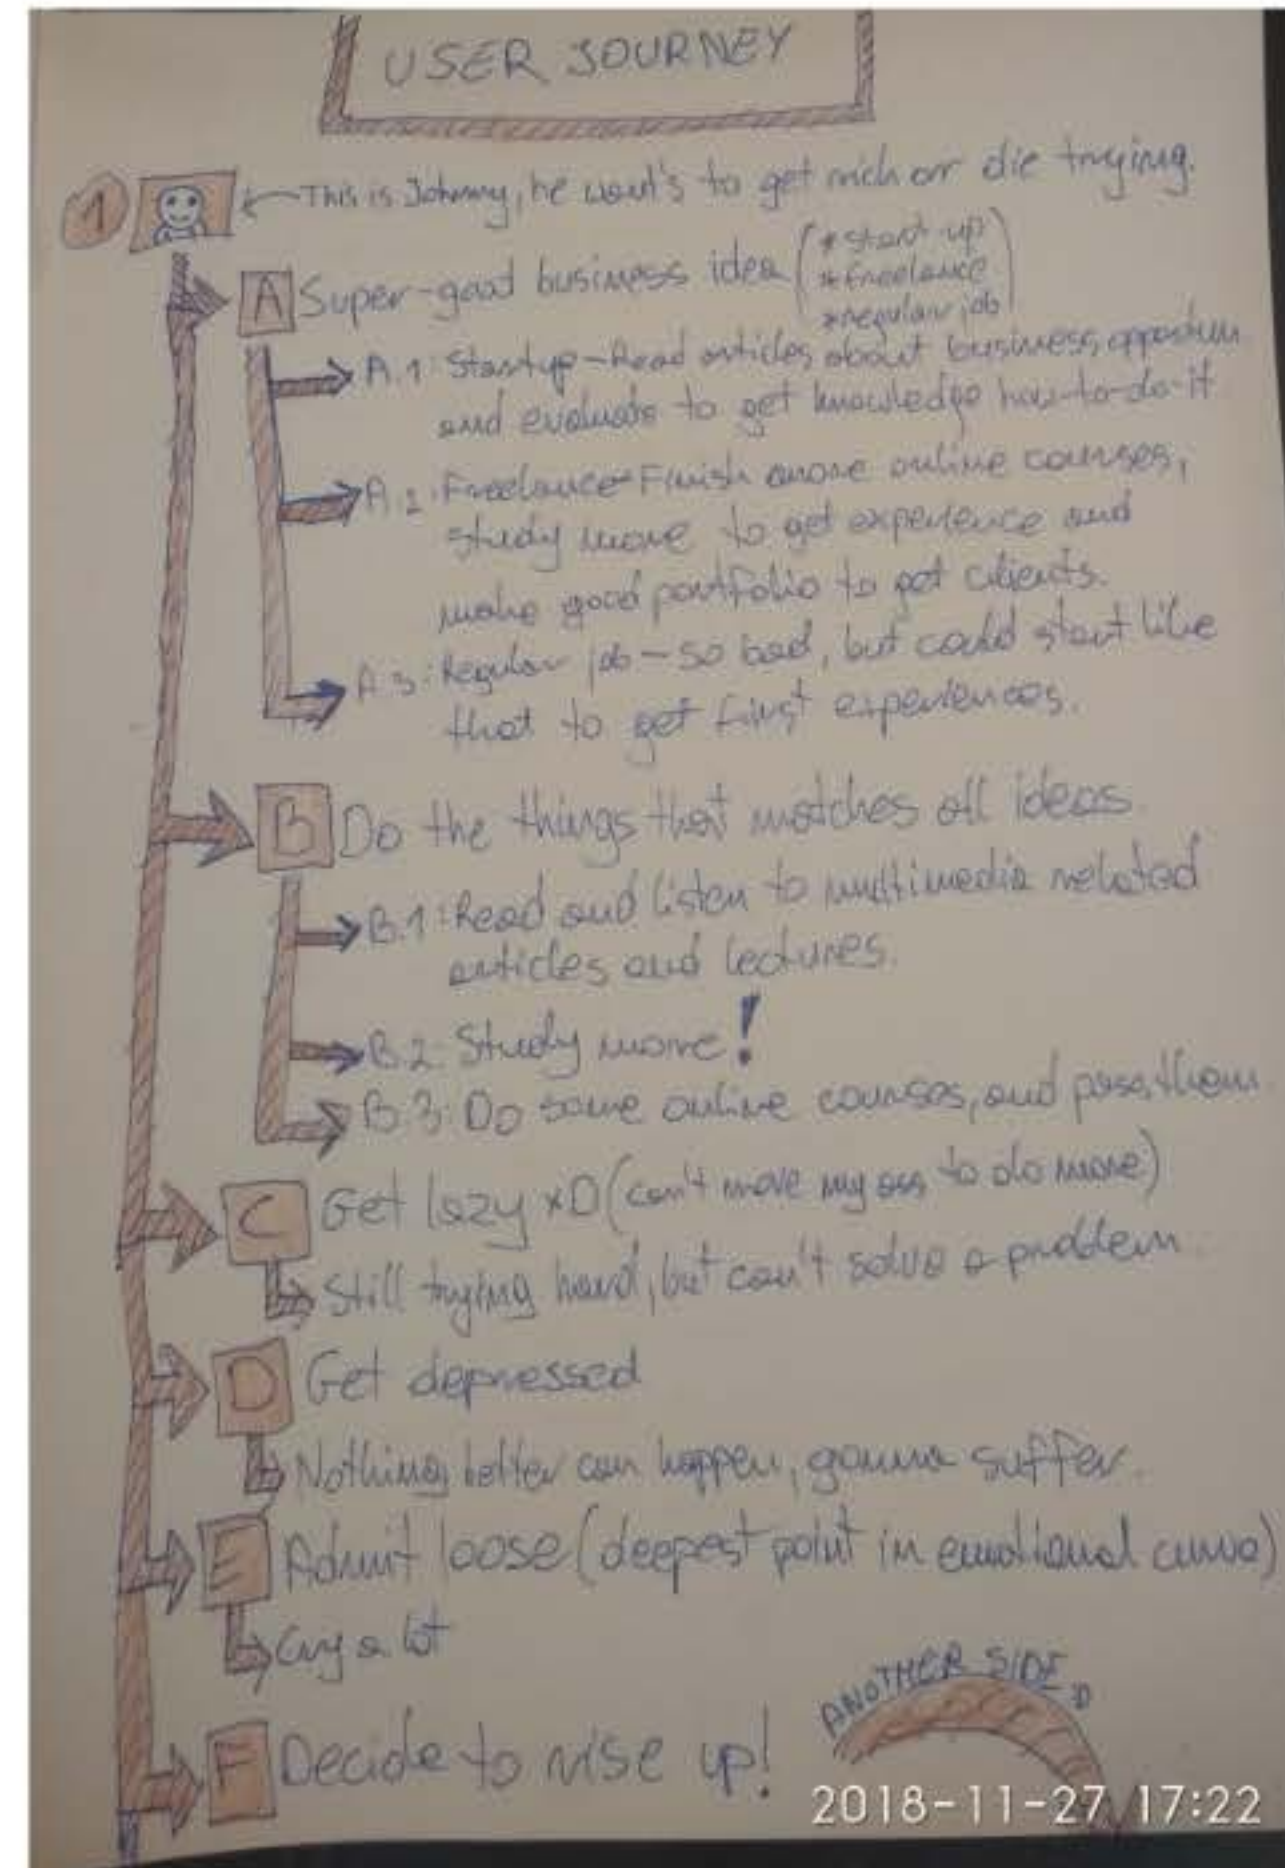 USER JOURNEY
1
This is Johnny, he want's to get rich or die trying.
A Super-good business idea (*start-up
*freelance
*regular job)
A.1: Startup-Read articles about business opportun
and evaluate to get knowledge how-to-do-it
A.2: Freelance-Finish more online courses,
study more to get experience and
make good portfolio to get clients.
A.3: Regular job - so bad, but could start like
that to get first experiences.
B Do the things that matches all ideas.
B.1: Read and listen to multimedia related
articles and lectures.
B.2: Study more!
B.3: Do some online courses, and pass them
C Get lazy xD (can't move my ass to do more)
Still trying hard, but can't solve a problem.
D Get depressed
Nothing better can happen, gonna suffer.
E Admit loose (deepest point in emotional curve)
Cry a lot
ANOTHER SIDE :D
F Decide to rise up!
2018-11-27 17:22